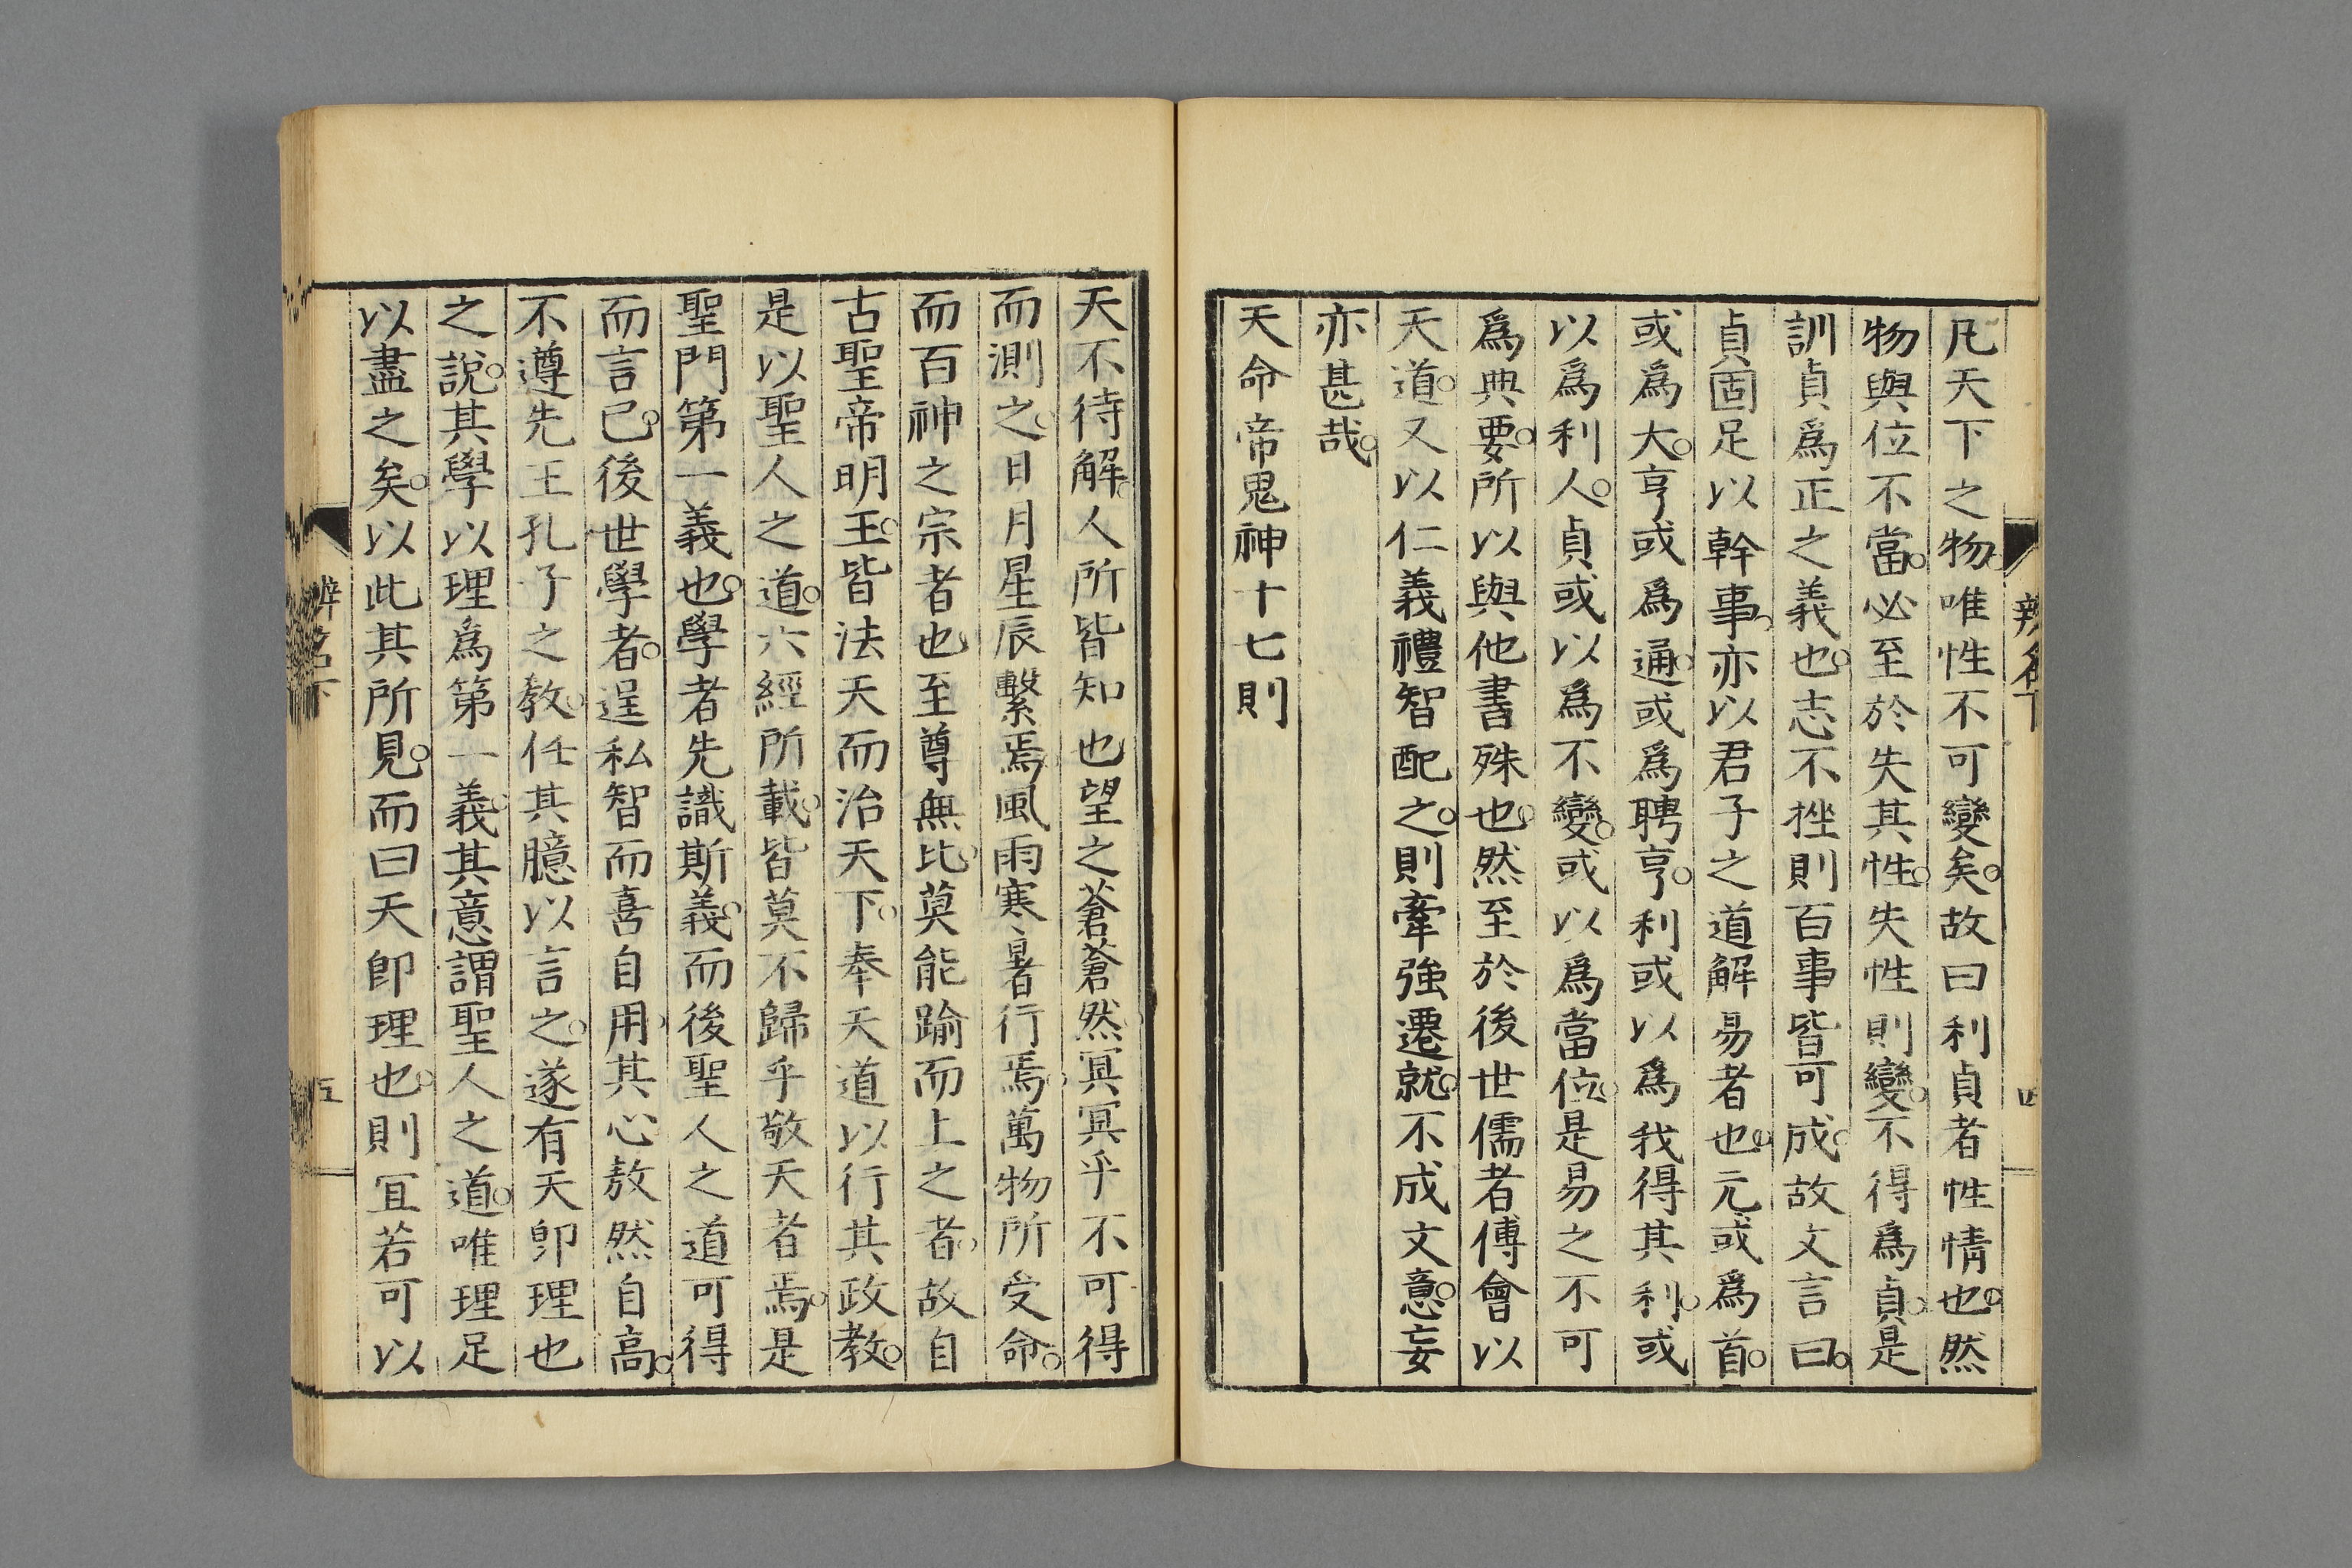 凡天下之物唯性不可變矣。故曰利貞者性情也。然
物與位不當。必至於失其性。失性則變。不得爲貞。是
訓貞爲正之義也。志不挫則百事皆可成。故文言曰。
貞固足以幹事。亦以君子之道解易者也。元或爲首。
或爲大。亨或爲通。或爲聘亨。利或以爲我得其利。或
以爲利人。貞或以爲不變。或以爲當位。是易之不可
爲典要。所以與他書殊也。然至於後世儒者傅會以
天道。又以仁義禮智配之。則牽強遷就。不成文意。妄
亦甚哉。
天命帝鬼神十七則
天不待解。人所皆知也望之蒼蒼然。冥冥乎不可得
而測之。日月星辰繫焉。風雨寒暑行焉。萬物所受命。
而百神之宗者也。至尊無比。莫能踰而上之者。故自
古聖帝明王。皆法天而治天下。奉天道以行其政教。
是以聖人之道。六經所載。皆莫不歸乎敬天者焉。是
聖門第一義也。學者先識斯義。而後聖人之道可得
而言已。後世學者。逞私智而喜自用。其心敖然自高。
不遵先王孔子之教。任其臆以言之。遂有天卽理也
之說。其學以理爲第一義。其意謂聖人之道。唯理足
以盡之矣。以此其所見。而曰天卽理也。則冝若可以
辨名下
四
辨名下
五